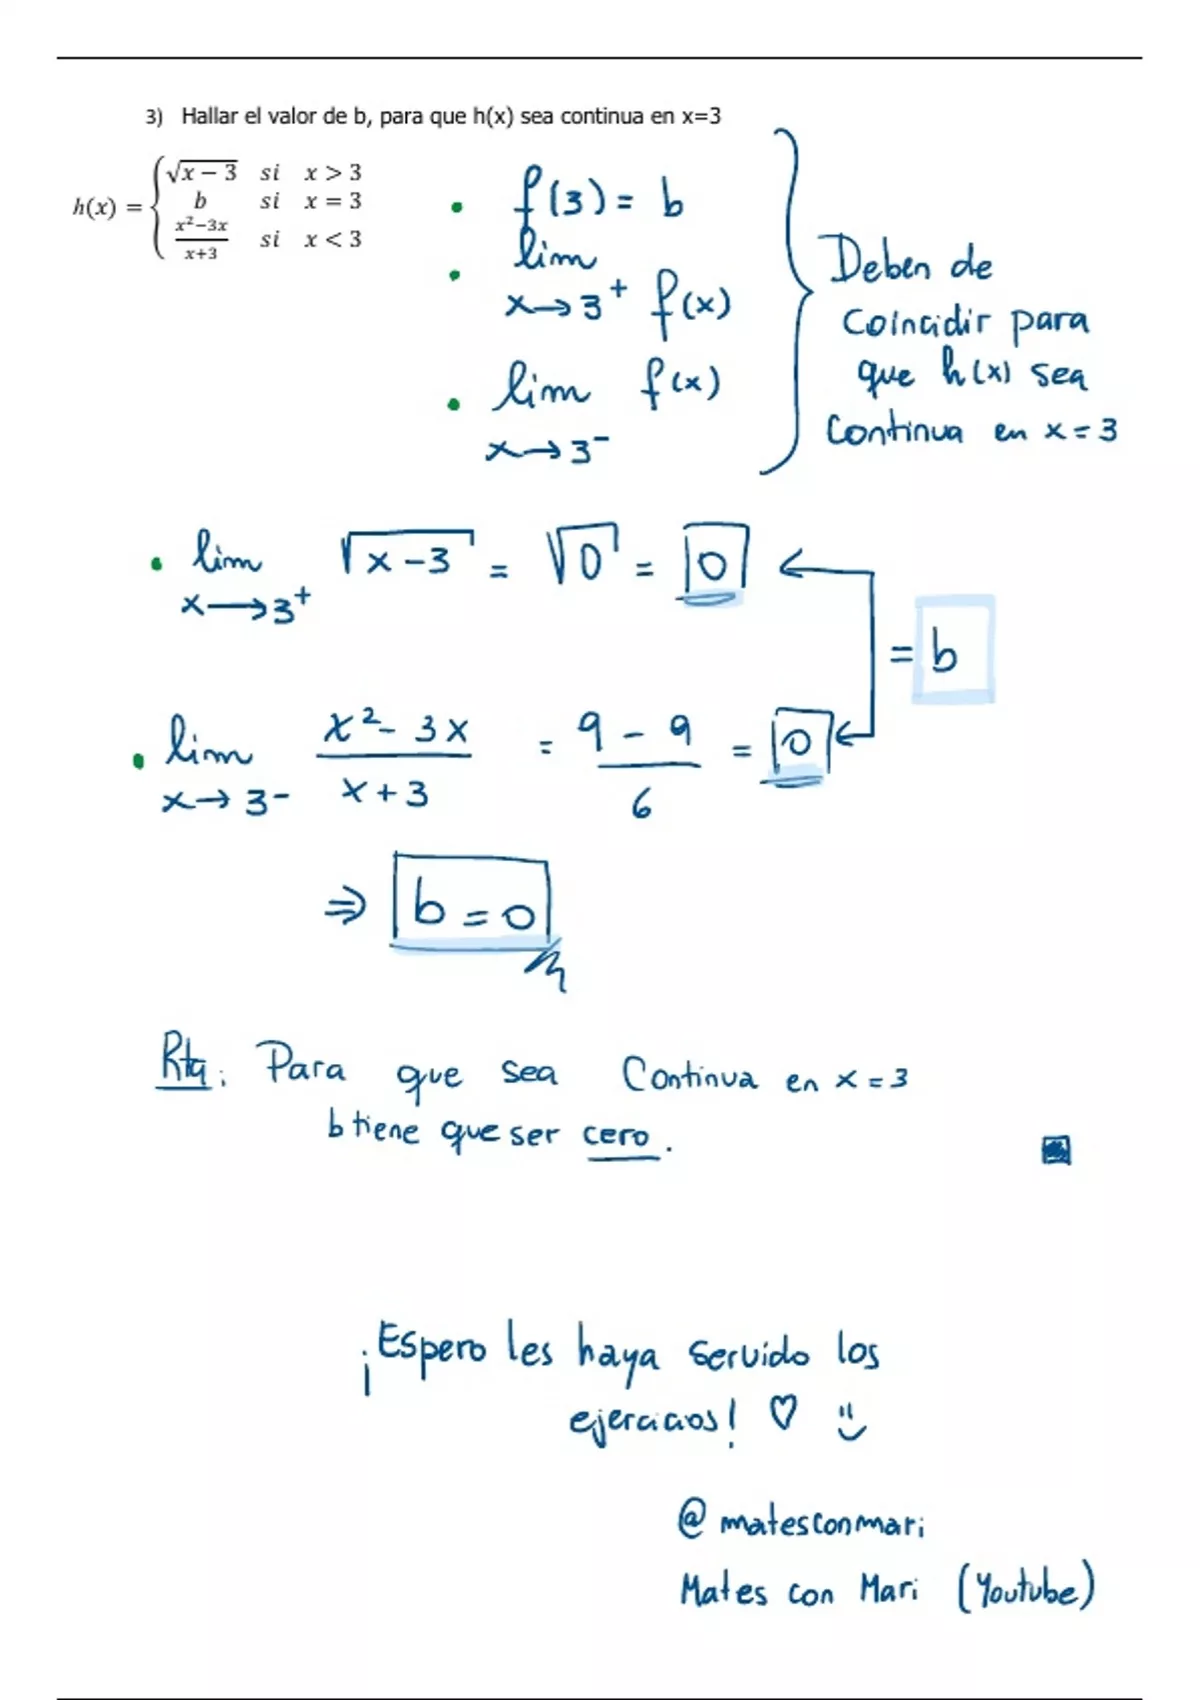 3) Hallar el valor de b, para que h(x) sea continua en x=3
h(x) = { √(x − 3) si x > 3
b si x = 3
(x²−3x)/(x+3) si x < 3
• f(3) = b
• lim x→3⁺ f(x)
• lim x→3⁻ f(x)
Deben de
coincidir para
que h(x) sea
continua en x = 3
• lim x→3⁺ √(x−3) = √0 = 0
= b
• lim x→3⁻ (x² − 3x)/(x + 3) = (9 − 9)/6 = 0
⇒ b = 0
Rta: Para que sea continua en x = 3
b tiene que ser cero.
¡Espero les haya servido los
ejercicios! ♡ ü
@matesconmari
Mates con Mari (Youtube)